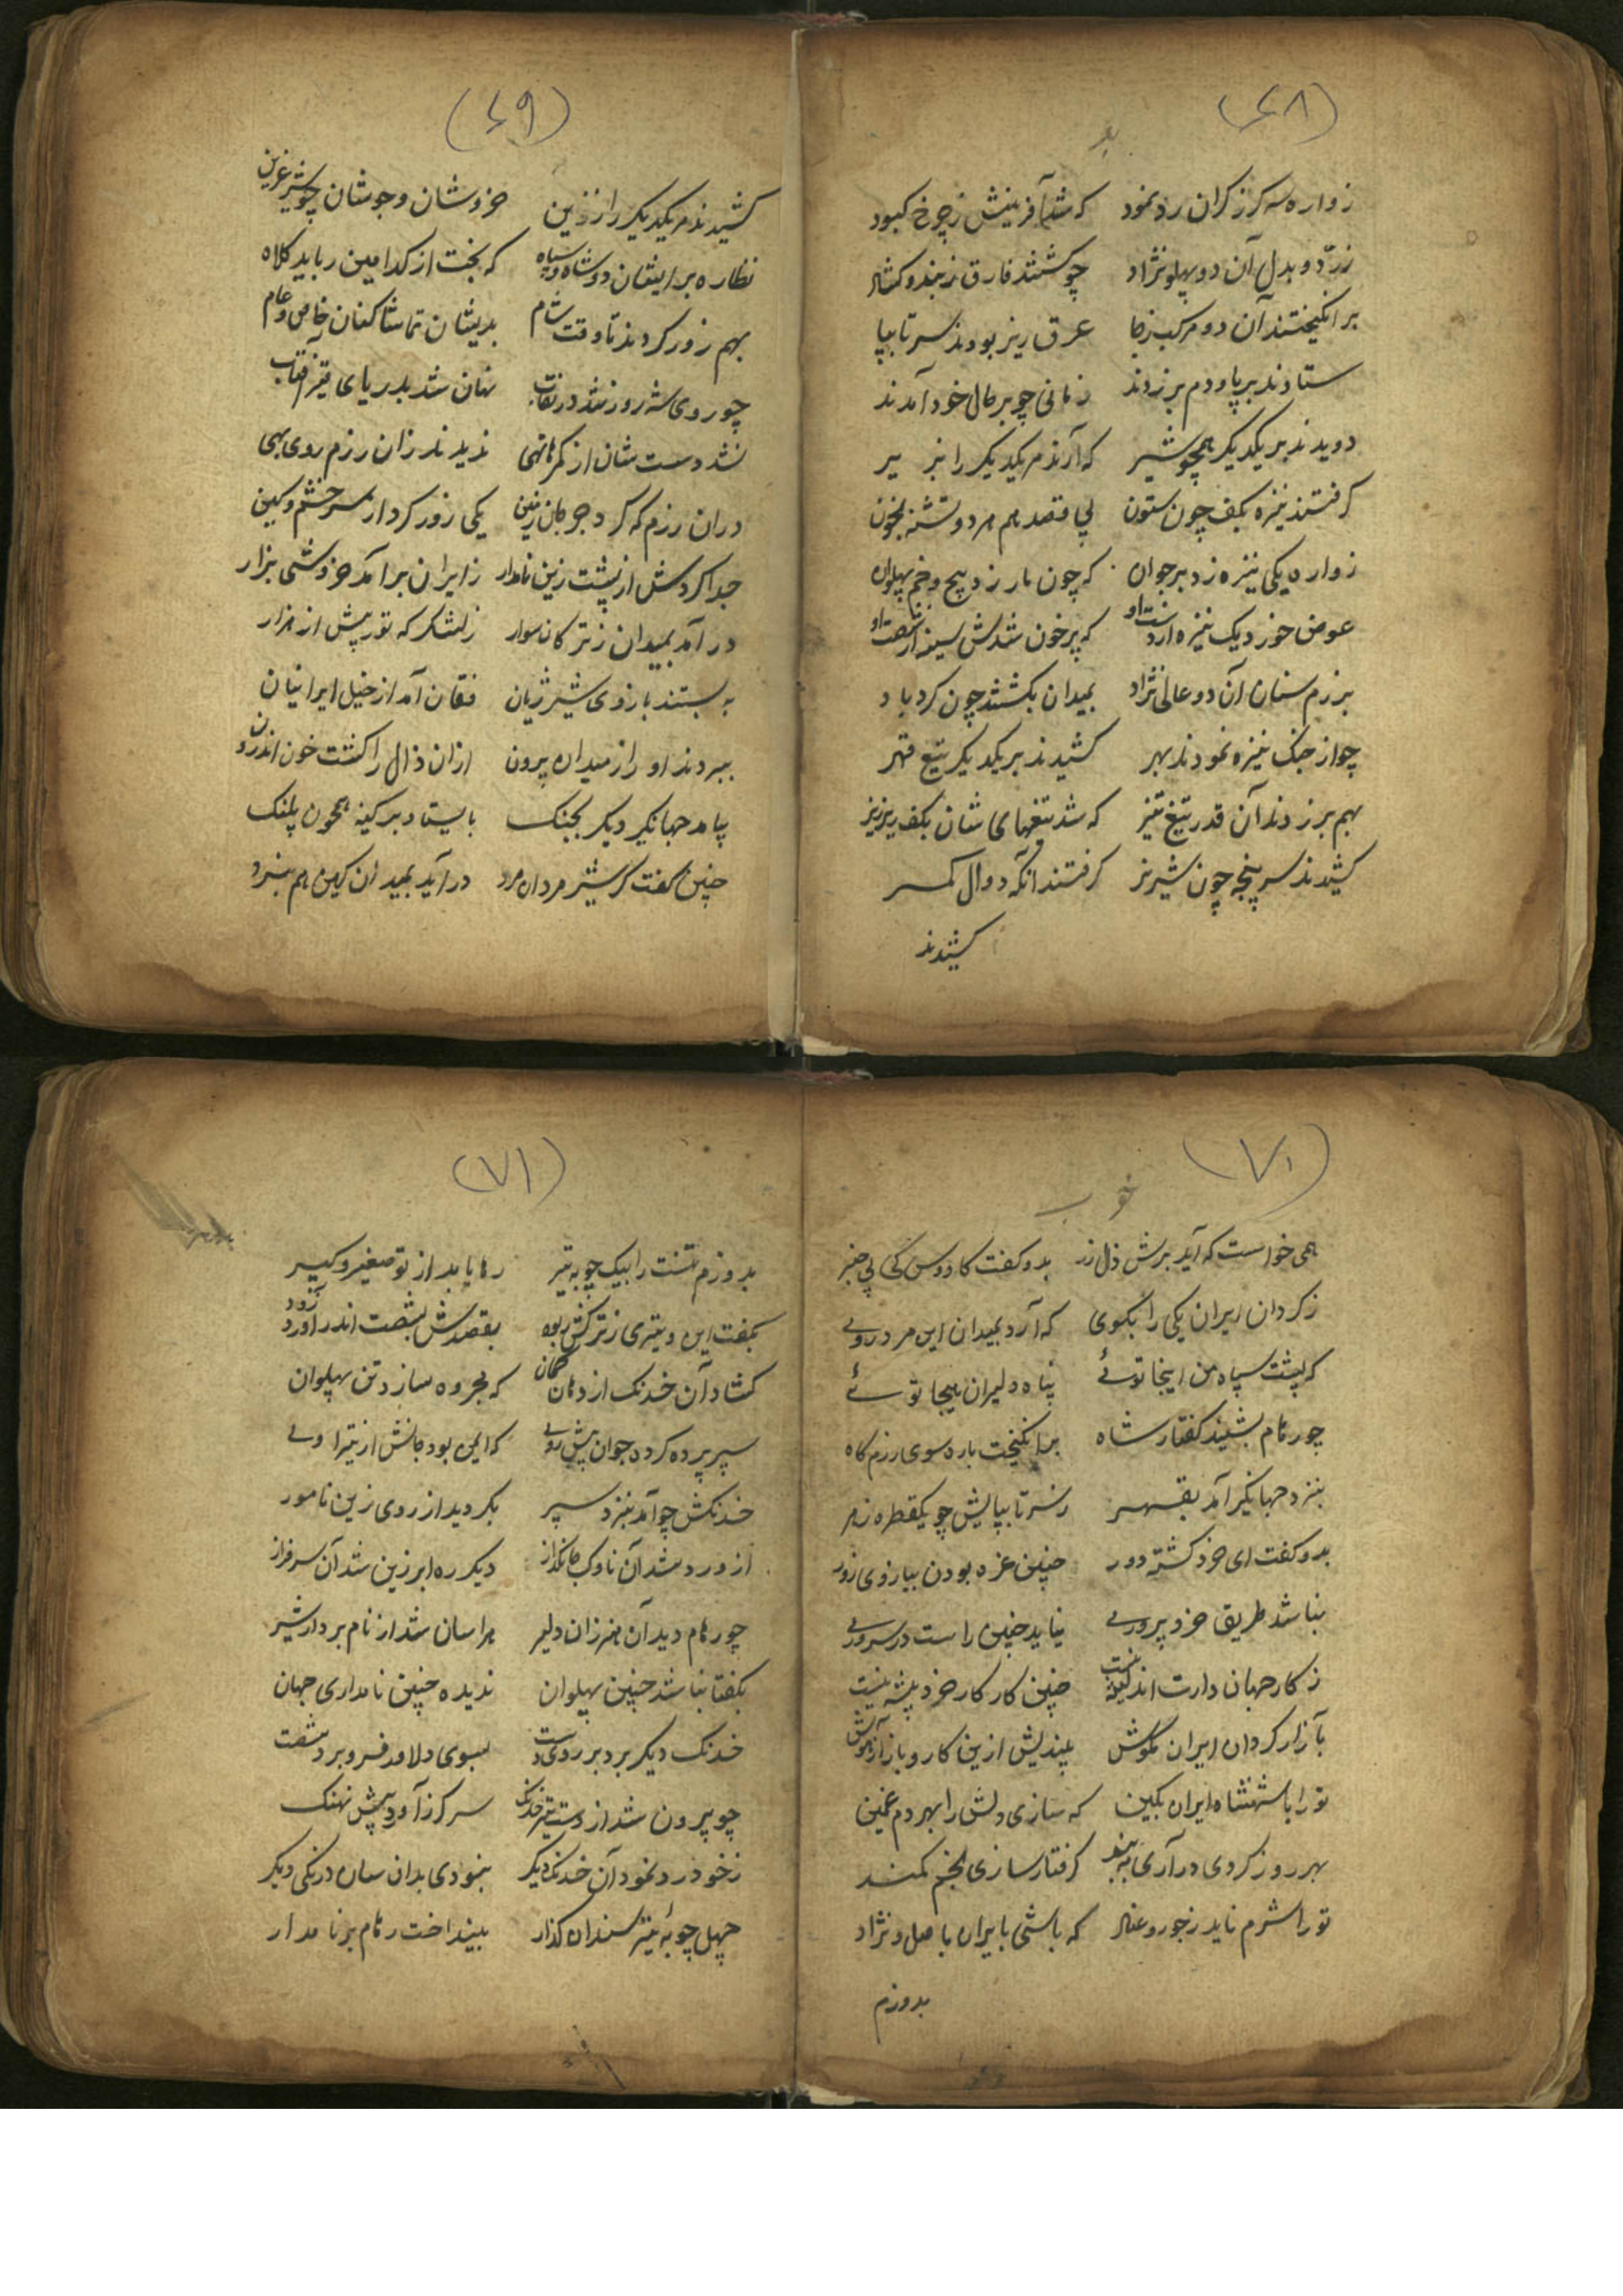 (۶۸)
زواره سه گرز گران رد نمود که شد آفرینش ز چرخ کبود
ز رد و بدل آن دو پهلو نژاد چو گشتند فارق ز بند و گشاد
بر انگیختند آن دو مرکب ز جا عرق ریز بودند سر تا بپا
ستادند بر پا و دم بر زدند زمانی چو بر حال خود آمدند
دویدند بر یکدیکر همچو شیر که آرند مر یکدیکر را بزیر
گرفتند نیزه بکف چون ستون پی قصد هم هر دو تشنه بخون
زواره یکی نیزه زد بر جوان که چون مار زد پیچ و خم پهلوان
عوض خورد یک نیزه از دست او که پر خون شدش سینه از شصت او
برزم سنان آن دو عالی نژاد بمیدان بگشتند چون گرد باد
چو از جنک نیزه نمودند بهر کشیدند بر یکدیکر تیغ قهر
بهم بر زدند آن قدر تیغ تیز که شد تیغهای شان بکف ریز ریز
کشیدند سر پنجه چون شیر نر گرفتند آنگه دوال کمر
کشیدند
(۶۹)
کشیدند مر یکدیکر را ز زین خروشان و جوشان چو شیر عرین
نظاره بر ایشان دو شاه و سپاه که بخت از کدامین رباید کلاه
بهم زور کردند تا وقت شام بدیشان تماشا کنان خاص و عام
چو روی شه روز شد در نقاب نهان شد بدریای قیر آفتاب
نشد دست شان از کمرها تهی ندیدند زان رزم روی بهی
دران رزم که گرد جرجان زمین یکی زور کرد از سر خشم و کین
جدا کردش از پشت زین نامدار ز ایران بر آمد خروشی بزار
در آمد بمیدان ز ترکان سوار ز لشکر که تور پیش از هزار
به بستند بازوی شیر ژیان فقان آمد از خیل ایرانیان
ببردند او را ز میدان برون ازان ذال را گشت خون اندرون
بیامد جهانگیر دیکر بجنک بایستاد بر کینه همچون پلنک
چنین گفت کز شیر مردان مرد در آید بمیدان کین هم نبرد
(۷۰)
خوب
همی خواست که آید برش ذال زر بدو گفت کاوس کی پی خبر
ز گردان ایران یکی را بگوی که آرد بمیدان این مرد روی
که پشت سپاه من اینجا توئی پناه دلیران بیجا توئی
چو رهام بشنید گفتار شاه بر انگیخت باره سوی رزمگاه
بنزد جهانگیر آمد بقهر ز سر تا بپایش چو یکقطره زهر
بدو گفت ای خرد گشته دور چنین غره بودن ببازوی زور
نباشد طریق خرد پروری نیاید چنین راست در سروری
ز کار جهان دارت اندیشه نیست چنین کار کار خرد پیشه نیست
بآزار گردان ایران مکوش بیندیش ازین کار و باز آر هوش
تو را با شهنشاه ایران بکین که سازی دلش را بهر دم غمین
بهر روز گردی در آری به بند گرفتار سازی بخم کمند
تو را شرم ناید ز جور و عناد که باشی بایران با اصل و نژاد
بدوزم
(۷۱)
بدوزم تنت را بیک چوبه تیر رها یابد از تو صغیر و کبیر
بگفت این و تیری ز ترکش ربود بقصدش بشصت اندر آورد زود
کشاد آن خدنک از دهان کمان که مجروه سازد تن پهلوان
سپر پرده کرد جوان پیش روی که ایمن بود جانش از تیر اوی
خدنکش چو آمد بنزد سپر بگردید از روی زین نامور
از و رد شد آن ناوک جانگداز دیکر ره ابر زین شد آن سرفراز
چو رهام دید آن هنر زان دلیر هراسان شد از نام بردار شیر
بگفتا نباشد چنین پهلوان ندیده چنین نامداری جهان
خدنک دیکر برد بر روی دست بسوی دلاور فرو برد شصت
چو بیرون شد از دست تیر خدنک سر گرز آورد پیش نهنک
ز خود رد نمود آن خدنک دیکر نبودی بدان سان درنکی دیکر
چهل چوبهٔ تیر سندان گذار بینداخت رهام بر نامدار